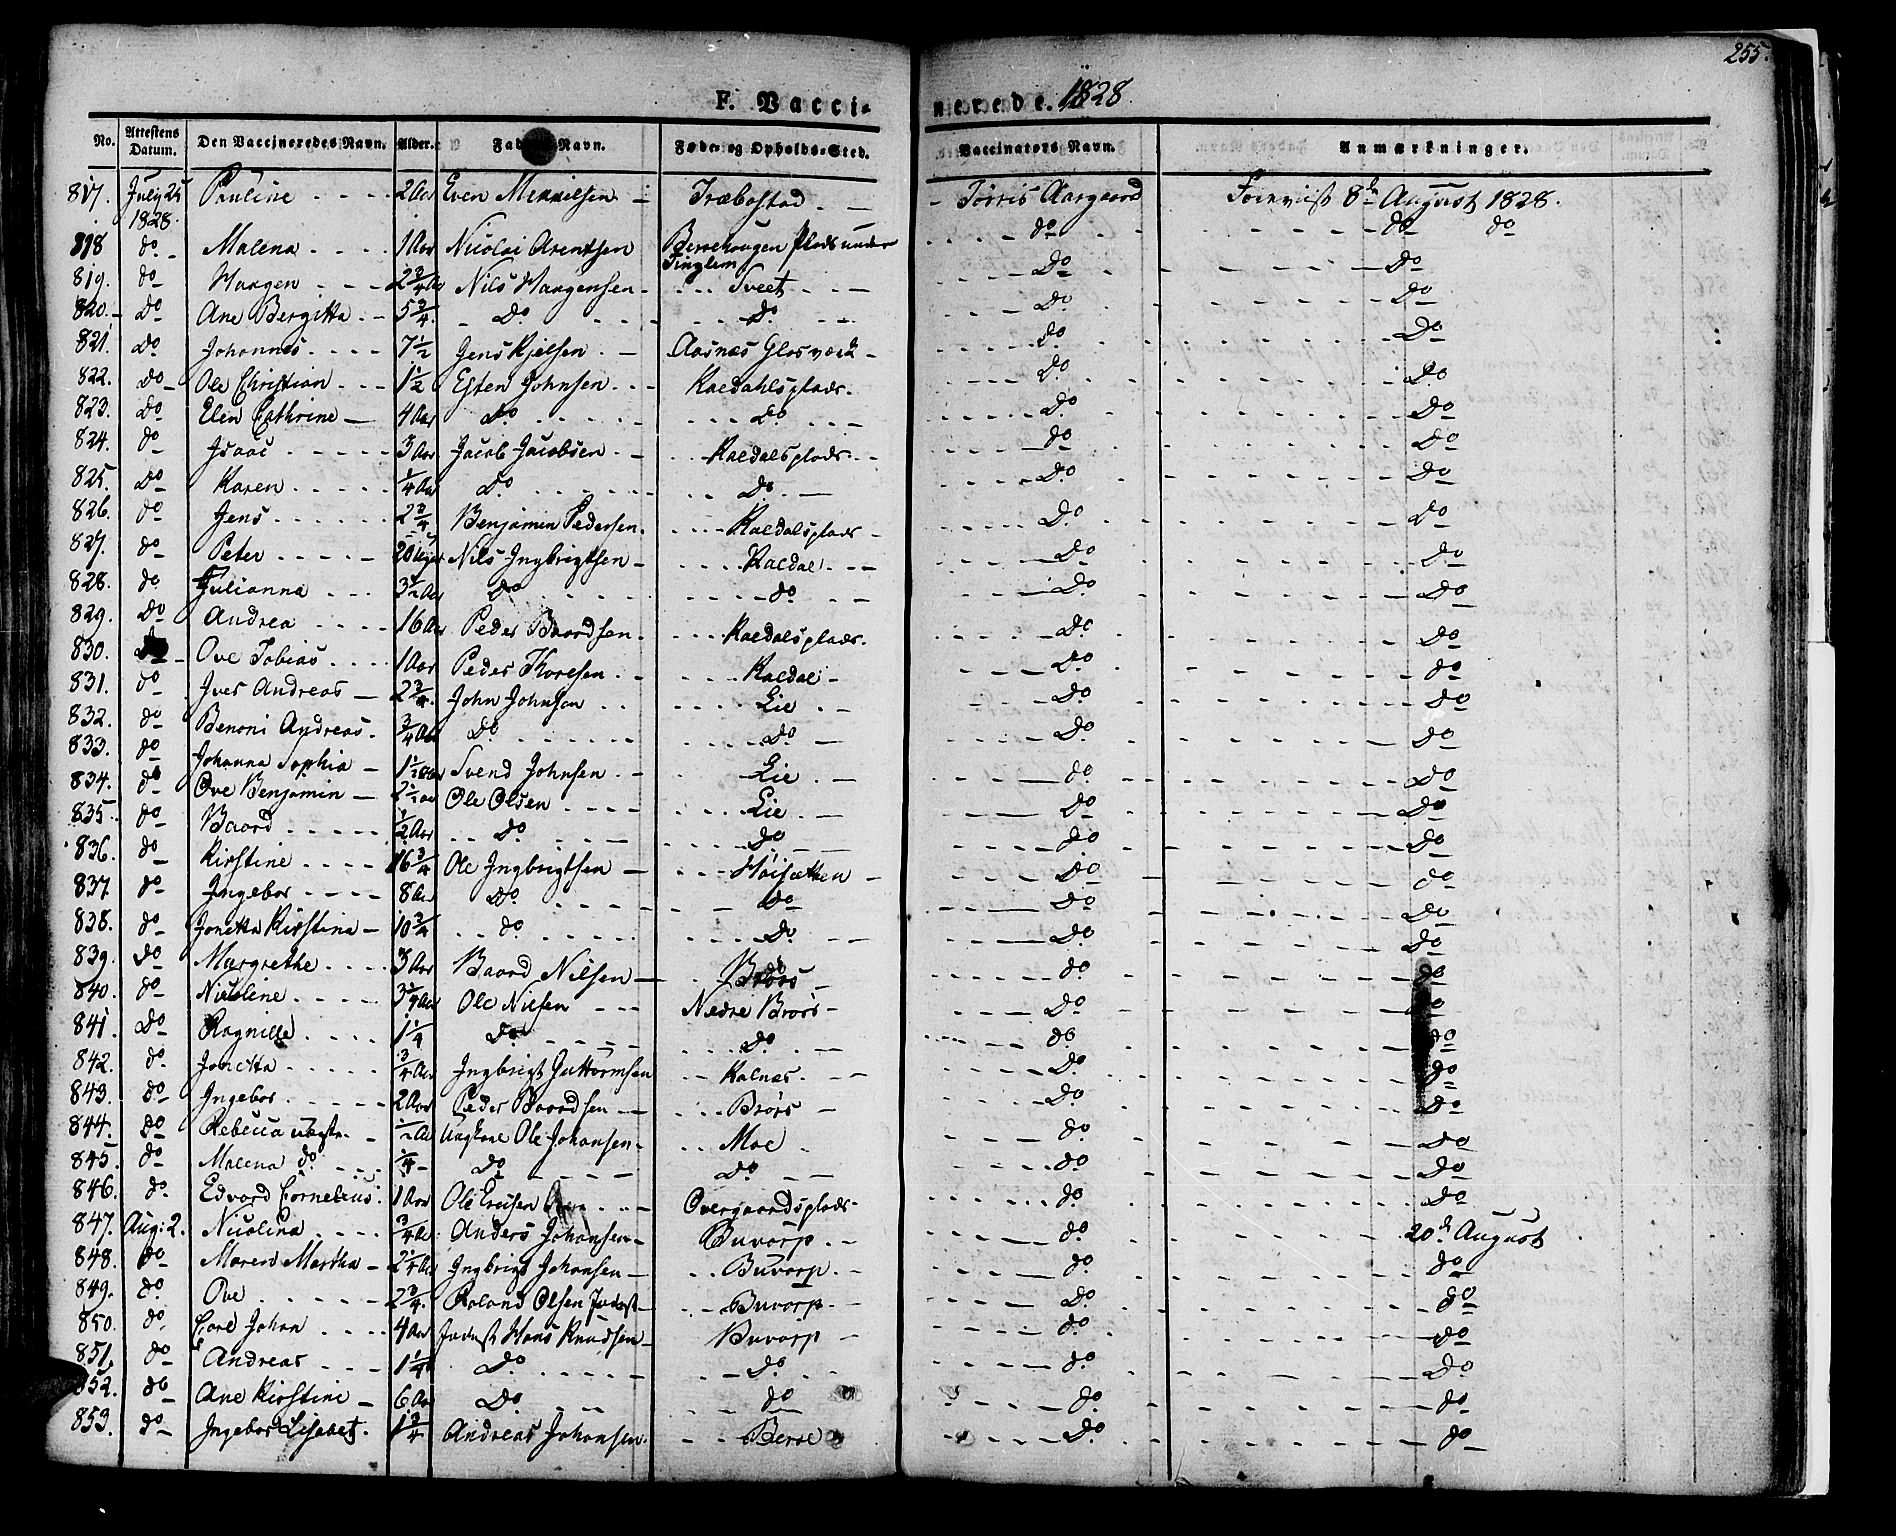 255.
F. Vacci-nerede. 1828
No. Attestens Datum. Den Vaccineredes Navn. Alder. Faders Navn. Føde- og Opholds-Sted. Vaccinators Navn. Anmærkninger.
817. July 25 1828. Pauline 2 Aar Even Mikkilsen Træbostad Tørris Aargaard Foreviist 8de August 1828.
818 do Malena 1 Aar Nicolai Arentsen Berrehougen Plads under Tinglem do do do
819. do Haagen 2 3/4 Aar Nils Haagensen Tveet Do Do
820. Do Ane Bergitta 5 3/4. Do Do. Do Do
821. Do Johannes 7 1/2 Jens Kjelsen Aasnæs Glasværk do Do
822. Do Ole Christian 1 1/2 Esten Johnsen Kaldahlsplads. Do. Do
823. Do Elen Cathrine 4 Aar Do. Do. Do Do
824. do Isaac 3 Aar Jacob Jacobsen Kaldalsplads do Do
825. Do Karen 1/4 Aar Do. Do. Do Do
826. do Jens 2 3/4 Benjamin Pedersen. Kaldalsplads Do. Do
827. do Peter 20 Uger Nils Ingbrigtsen Kaldal Do Do
828. do Julianna 3 1/2 Aar Do do Do Do
829. Do Andrea 16 Aar Peder Baardsen. Kaldalsplads. Do Do
830. Do Ove Tobias 1 Aar Peder Thoresen Kaldal Do do
831. do Iver Andreas 2 3/4. John Johnsen Lie Do Do
832. do Benoni Andreas. 3/4 Aar Do. Do Do do
833. do Johanna Sophia 1 1/2 Aar Svend Johnsen Lie do Do
834. do Ove Benjamin 2 1/2 Aar Ole Olsen Lie Do Do
835. do Baard 1/2 Aar Do do do Do
836. do Kirstine 16 3/4 Ole Ingbrigtsen Høisætken Do do
837 do Ingebor 8 Aar Do Do Do Do
838. do Jonetta Kirstina 10 3/4 do. Do. Do Do
839. Do Margrethe 3 Aar Baard Nilsen Brørs do do
840. do Nicoline 3 1/4 Aar Ole Nilsen Nedre Brørs Do Do
841. Do Ragnille 1 1/4 Do Do. do. do
842. do Jonetta 3/4 Aar Ingbrigt Guttormsen Kalnæs Do do
843. do Ingebor 2 Aar Peder Baardsen Brørs Do Do
844. Do Rebecca 1/2 Aar Ungkarl Ole Johansen Moe do Do
845. do Malena do 1/4 Do Do do Do
846. do Edvard Cornelius. 1 Aar Ole Overgaardsplads. do Do
847. Aug: 2. Nicolina 3/4 Aar Anders Johansen Buvarp do 20de August
848. do Maren Martha 2 1/4 Aar Ingbrigt Johansen Buvarp do do
849. do Ove 2 3/4. Roland Olsen Inderst Buvarp Do do
850. do Carl Johan 4 Aar Inderst Hans Knudsen Buvarp do Do
851. do Andreas 1 1/4 Do Do do. Do
852. do Ane Kirstine 6 Aar Do do do do
853. do Ingebor Lisabet. 1 3/4 Andreas Johansen Berre Do do